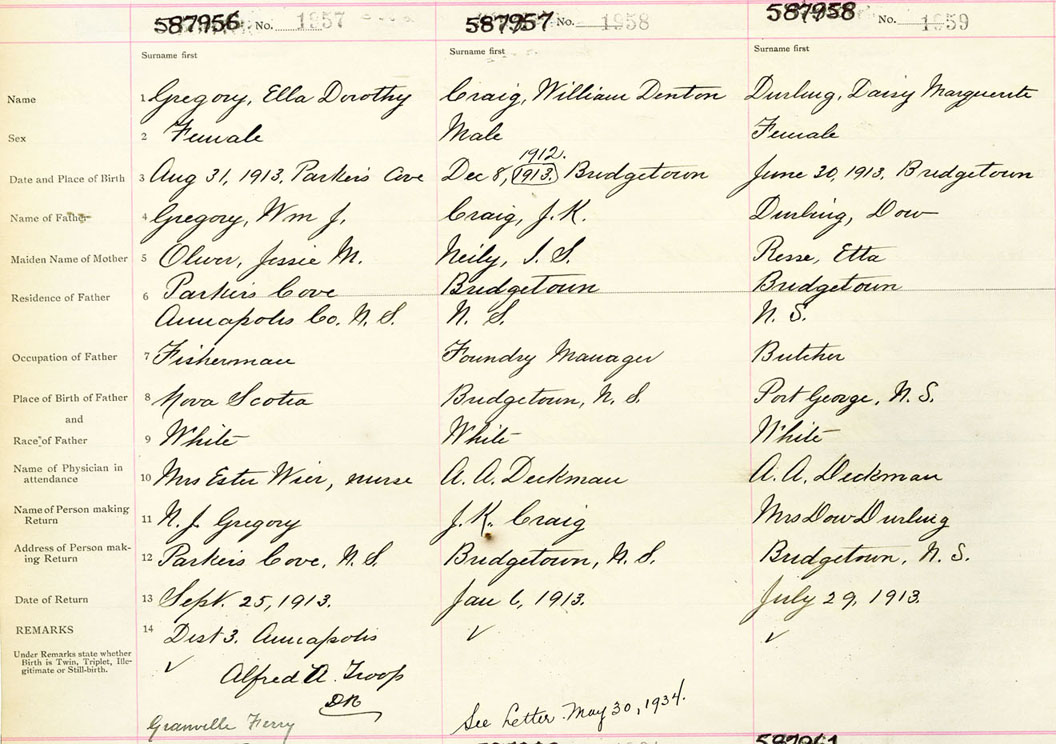 587956 No. 1957 587957 No. 1958 587958 No. 1959
Surname first Surname first Surname first
Name 1 Gregory, Ella Dorothy Craig, William Denton Durling, Daisy Marguerite
Sex 2 Female Male Female
1912.
Date and Place of Birth 3 Aug 31, 1913. Parkers Cove Dec 8, 1913. Bridgetown June 30, 1913. Bridgetown
Name of Father 4 Gregory, Wm J. Craig, J. K. Durling, Dow
Maiden Name of Mother 5 Oliver, Jessie M. Neily, I. S. Etta
Residence of Father 6 Parkers Cove Bridgetown Bridgetown
Annapolis Co. N. S. N. S. N. S.
Occupation of Father 7 Fisherman Foundry Manager Butcher
Place of Birth of Father 8 Nova Scotia Bridgetown, N. S. Port George, N. S.
and
Race of Father 9 White White White
Name of Physician in
attendance 10 Mrs Ester Wier, nurse A. A. Deckman A. A. Deckman
Name of Person making
Return 11 N. J. Gregory J. K. Craig Mrs Dow Durling
Address of Person mak-
ing Return 12 Parkers Cove, N. S. Bridgetown, N. S. Bridgetown, N. S.
Date of Return 13 Sept. 25, 1913. Jan 6, 1913. July 29, 1913.
REMARKS 14 Dist 3. Annapolis
Under Remarks state whether
Birth is Twin, Triplet, Ille-
gitimate or Still-birth.
Alfred A. Troop
DR
Granville Ferry See Letter May 30, 1934.